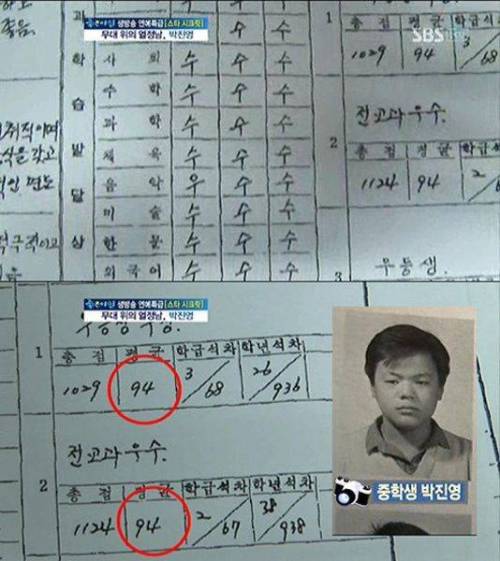 좋은아침 생방송 연예특급[스타 시크릿]
무대 위의 열정남, 박진영
SBS
과
학
습
발
달
상
사 회 수 수 수
수 학 수 수 수
과 학 수 수 수
체 육 수 수 수
음 악 우 수 수
미 술 수 수 수
한 문 수 수 수
외 국 어 수 수 수
1029 94 3/68
전교과우수.
2
총 점 평 균 학급석
1124 94 2/6
3 우등생
좋은아침 생방송 연예특급[스타 시크릿]
무대 위의 열정남, 박진영
1
총 점 평 균 학급석차 학년석차
1029 94 3/68 26/936
전교과우수.
2
총 점 평 균 학급석차 학년석차
1124 94 2/67 38/938
중학생 박진영